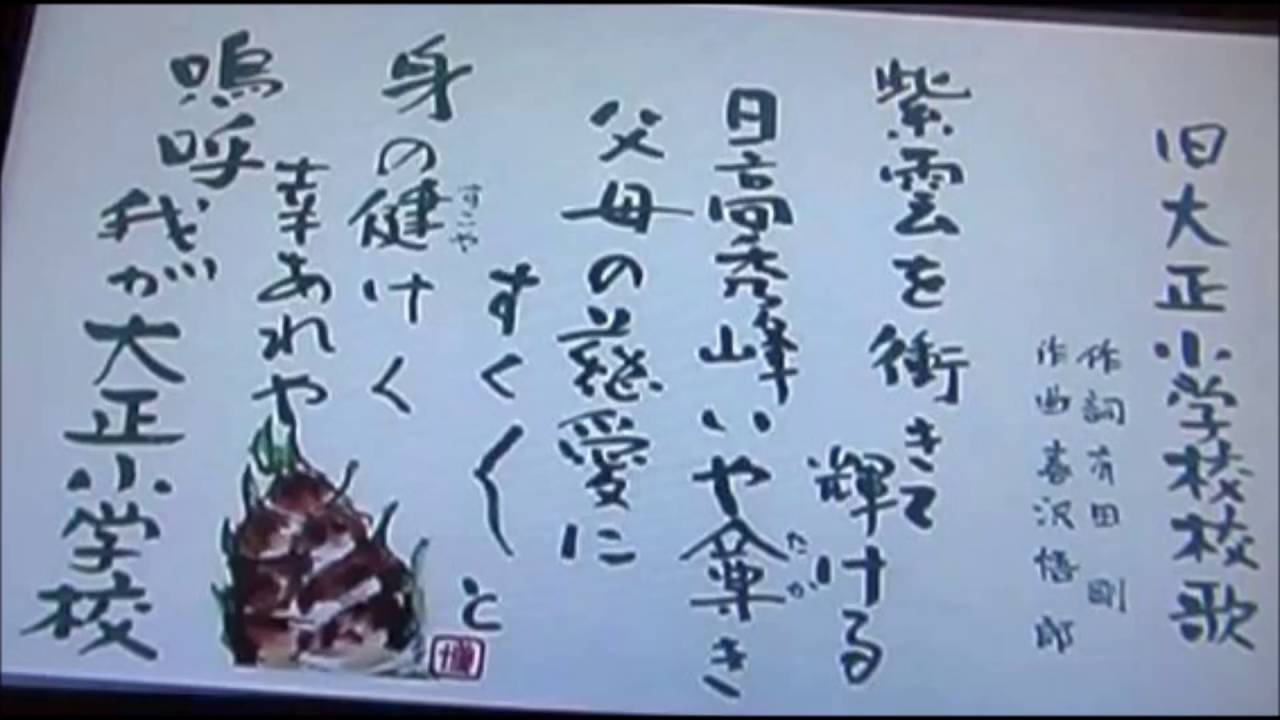 旧大正小学校校歌
作詞 有田 剛
作曲 喜沢悟郎
紫雲を衝きて
輝ける
日高秀峰いや峯き
たか
父母の慈愛に
すく〱と
身の健けく
すこや
幸あれや
嗚呼
我が大正小学校